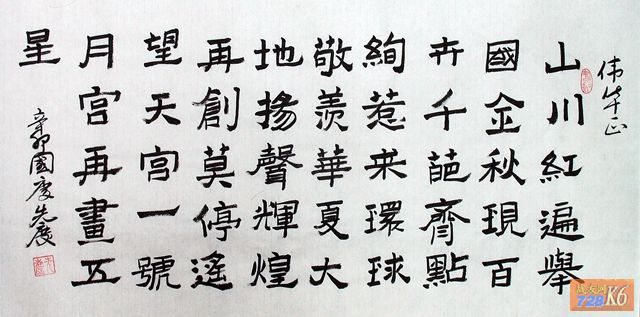 伟 正
山川紅遍舉
國金秋現百
卉千葩齊點
絢惹来環球
敬羨華夏大
地揚聲輝煌
再創莫停遙
望天宮一號
月宮再畫五
星
辛卯國慶先
战友网
728
K6